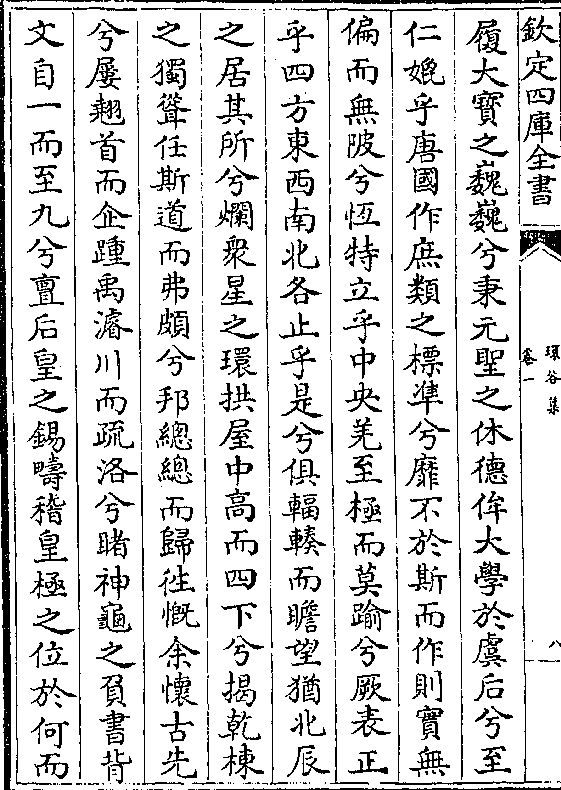 欽定四庫全書
環谷集
卷一
八
履大寶之巍巍兮秉元聖之休德侔大學於虞后兮至
仁媲乎唐國作庶類之標凖兮靡不於斯而作則實無
偏而無陂兮恆特立乎中央羌至極而莫踰兮厥表正
乎四方東西南北各止乎是兮俱輻輳而瞻望猶北辰
之居其所兮爛衆星之環拱屋中高而四下兮揭乾棟
之獨聳任斯道而弗頗兮邦總總而歸徃慨余懷古先
兮屢翹首而企踵禹濬川而疏洛兮睹神龜之負書背
文自一而至九兮亶后皇之錫疇稽皇極之位於何而